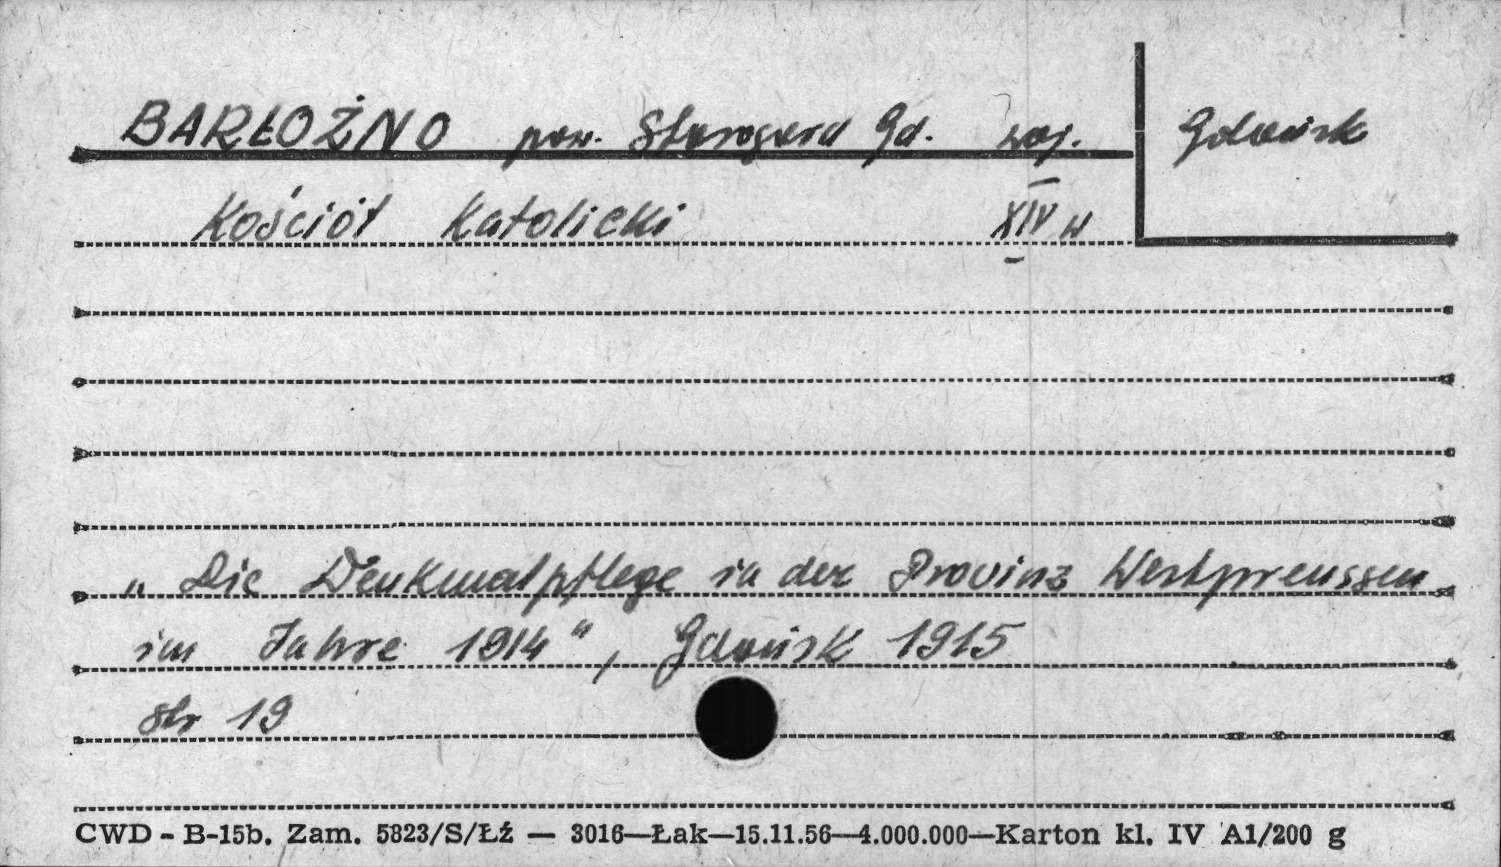 BARŁOŻNO pow. Starogard Gd. woj. Gdańsk
Kościół Katolicki XIV w
„Die Denkmalpflege in der Provinz Westpreussen
im Jahre 1914“, Gdańsk 1915
str 19
CWD - B-15b. Zam. 5823/S/Łź — 3016—Łak—15.11.56—4.000.000—Karton kl. IV A1/200 g